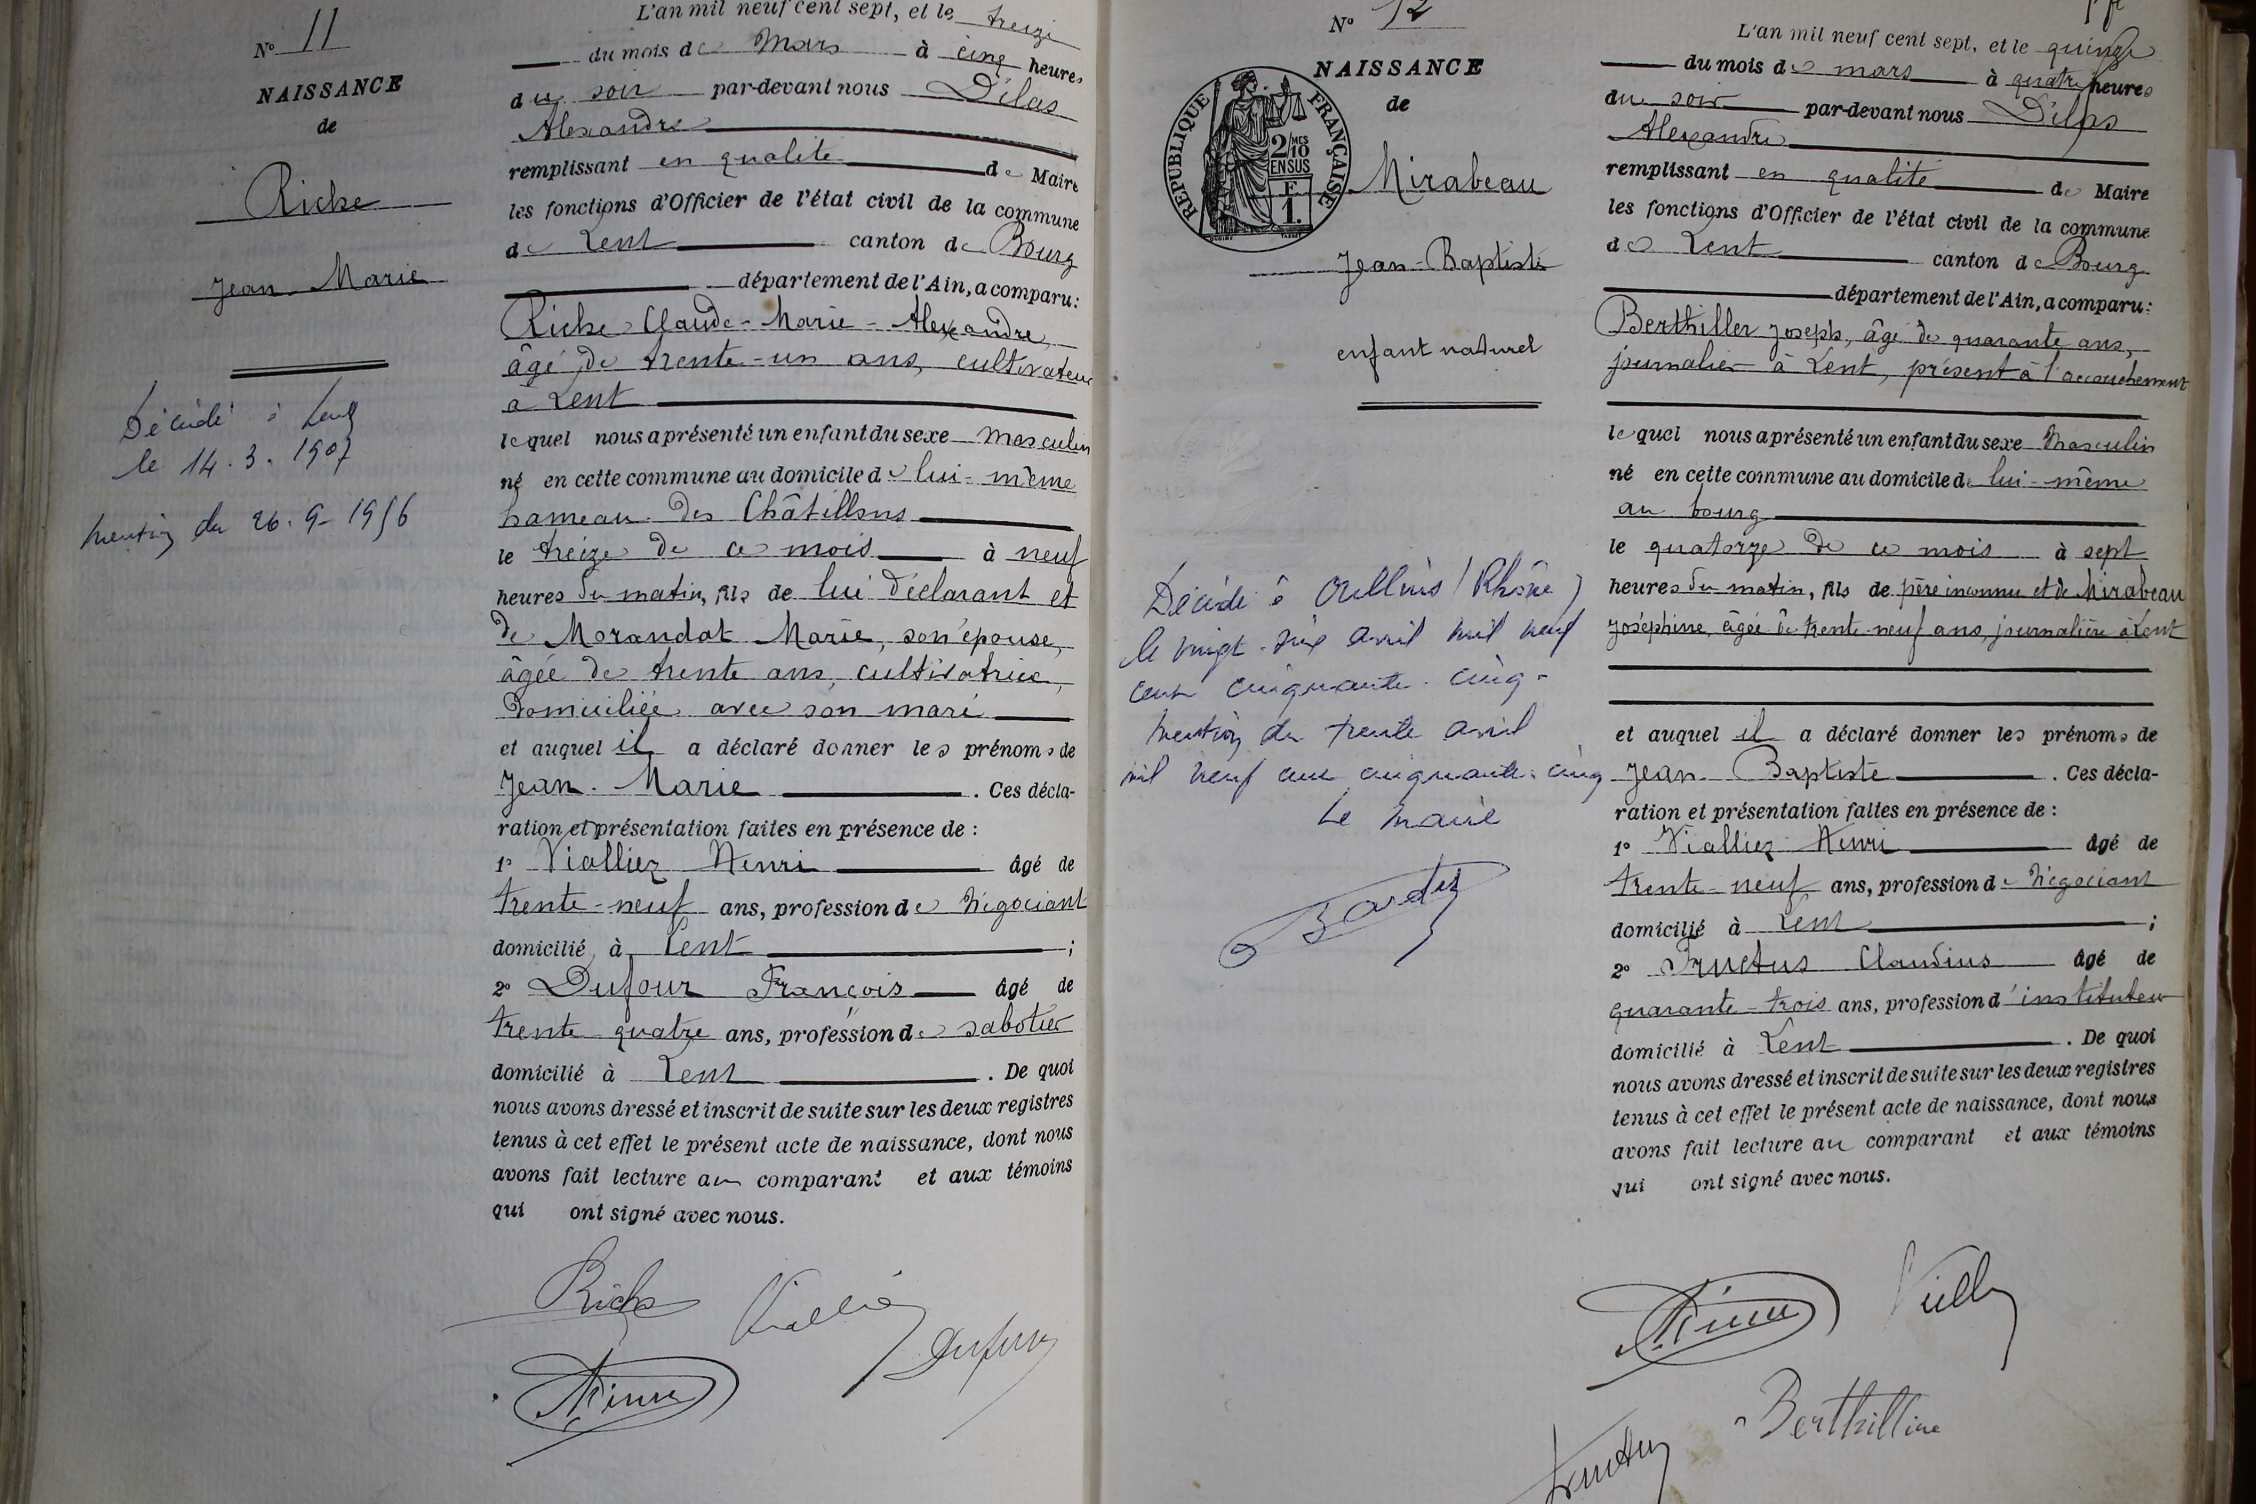 N° 11
NAISSANCE
de
Riche
Jean Marie
Décédé à Lent
le 14.3.1907
mention du 26.9.1956
L'an mil neuf cent sept, et le treize
du mois de Mars à cinq heures
du soir par-devant nous Dilas
Alexandre
remplissant en qualité de Maire
les fonctions d'Officier de l'état civil de la commune
de Lent canton de Bourg
département de l'Ain, a comparu:
Riche Claude-Marie-Alexandre,
âgé de trente-un ans, cultivateur
à Lent
lequel nous a présenté un enfant du sexe masculin
né en cette commune au domicile de lui-même
hameau des Châtillons
le treize de ce mois à neuf
heures du matin, fils de lui déclarant et
de Morandat Marie, son épouse,
âgée de trente ans, cultivatrice,
domiciliée avec son mari
et auquel il a déclaré donner les prénoms de
Jean-Marie . Ces décla-
ration et présentation faites en présence de :
1° Viallier Henri âgé de
trente-neuf ans, profession de négociant
domicilié à Lent ;
2° Dufour François âgé de
trente quatre ans, profession de sabotier
domicilié à Lent . De quoi
nous avons dressé et inscrit de suite sur les deux registres
tenus à cet effet le présent acte de naissance, dont nous
avons fait lecture au comparant et aux témoins
qui ont signé avec nous.
Riche
Dufour
N° 12
NAISSANCE
de
RÉPUBLIQUE FRANÇAISE
2/MES 10
EN SUS
F.
1.
Mirabeau
Jean-Baptiste
enfant naturel
Décédé à Oullins (Rhône)
le vingt-six avril mil neuf
cent cinquante-cinq-
mention du trente avril
mil neuf cent cinquante-cinq
Le Maire
L'an mil neuf cent sept, et le quinze
du mois de mars à quatre heures
du soir par-devant nous Dilas
Alexandre
remplissant en qualité de Maire
les fonctions d'Officier de l'état civil de la commune
de Lent canton de Bourg
département de l'Ain, a comparu:
Berthillier Joseph, âgé de quarante ans,
journalier à Lent, présent à l'accouchement
lequel nous a présenté un enfant du sexe masculin
né en cette commune au domicile de lui-même
au bourg
le quatorze de ce mois à sept
heures du matin, fils de père inconnu et de Mirabeau
Joséphine, âgée de trente-neuf ans, journalière à Lent
et auquel il a déclaré donner les prénoms de
Jean-Baptiste . Ces décla-
ration et présentation faites en présence de :
1° Viallier Henri âgé de
trente-neuf ans, profession de négociant
domicilié à Lent ;
2° Fructus Claudius âgé de
quarante-trois ans, profession d'instituteur
domicilié à Lent . De quoi
nous avons dressé et inscrit de suite sur les deux registres
tenus à cet effet le présent acte de naissance, dont nous
avons fait lecture au comparant et aux témoins
qui ont signé avec nous.